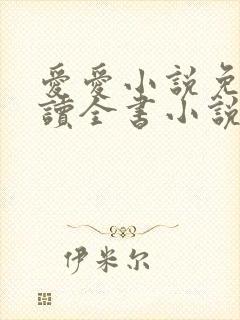 愛愛小說免
讀全書小說
伊米尔